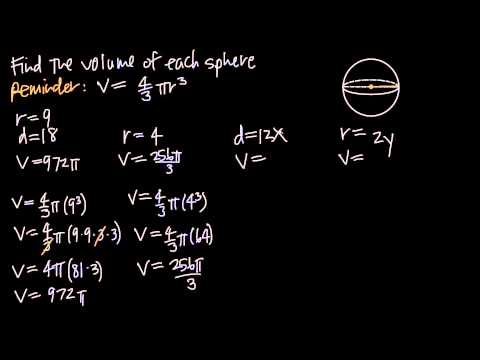 Find the volume of each sphere
Reminder: V = 4/3 πr³
r = 9
d = 18
V = 972π
r = 4
V = 256π/3
d = 12x
V =
r = 2y
V =
V = 4/3 π(9³)
V = 4/3 π(9·9·3·3)
V = 4π(81·3)
V = 972π
V = 4/3 π(4³)
V = 4/3 π(64)
V = 256π/3